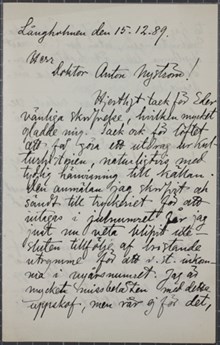 Långholmen den 15.12.89.
Herr
Doktor Anton Nyström!
Hjertligt tack för Eder
vänliga skrifvelse, hvilken mycket
gladde mig. Tack ock för löftet
att få göra ett utdrag ur
naturligtvis med
tydlig hänvisning till källan.
Den anmälan jag skrifvit och
sändt till tryckeriet för att
intagas i julnumret har jag
just nu veta blifvit ute-
sluten till följd af bristande
utrymme för att s. st. inkom-
ma i nyårsnumret. Jag är
mycket missbelåten med detta
uppskof, men rår ej för det,